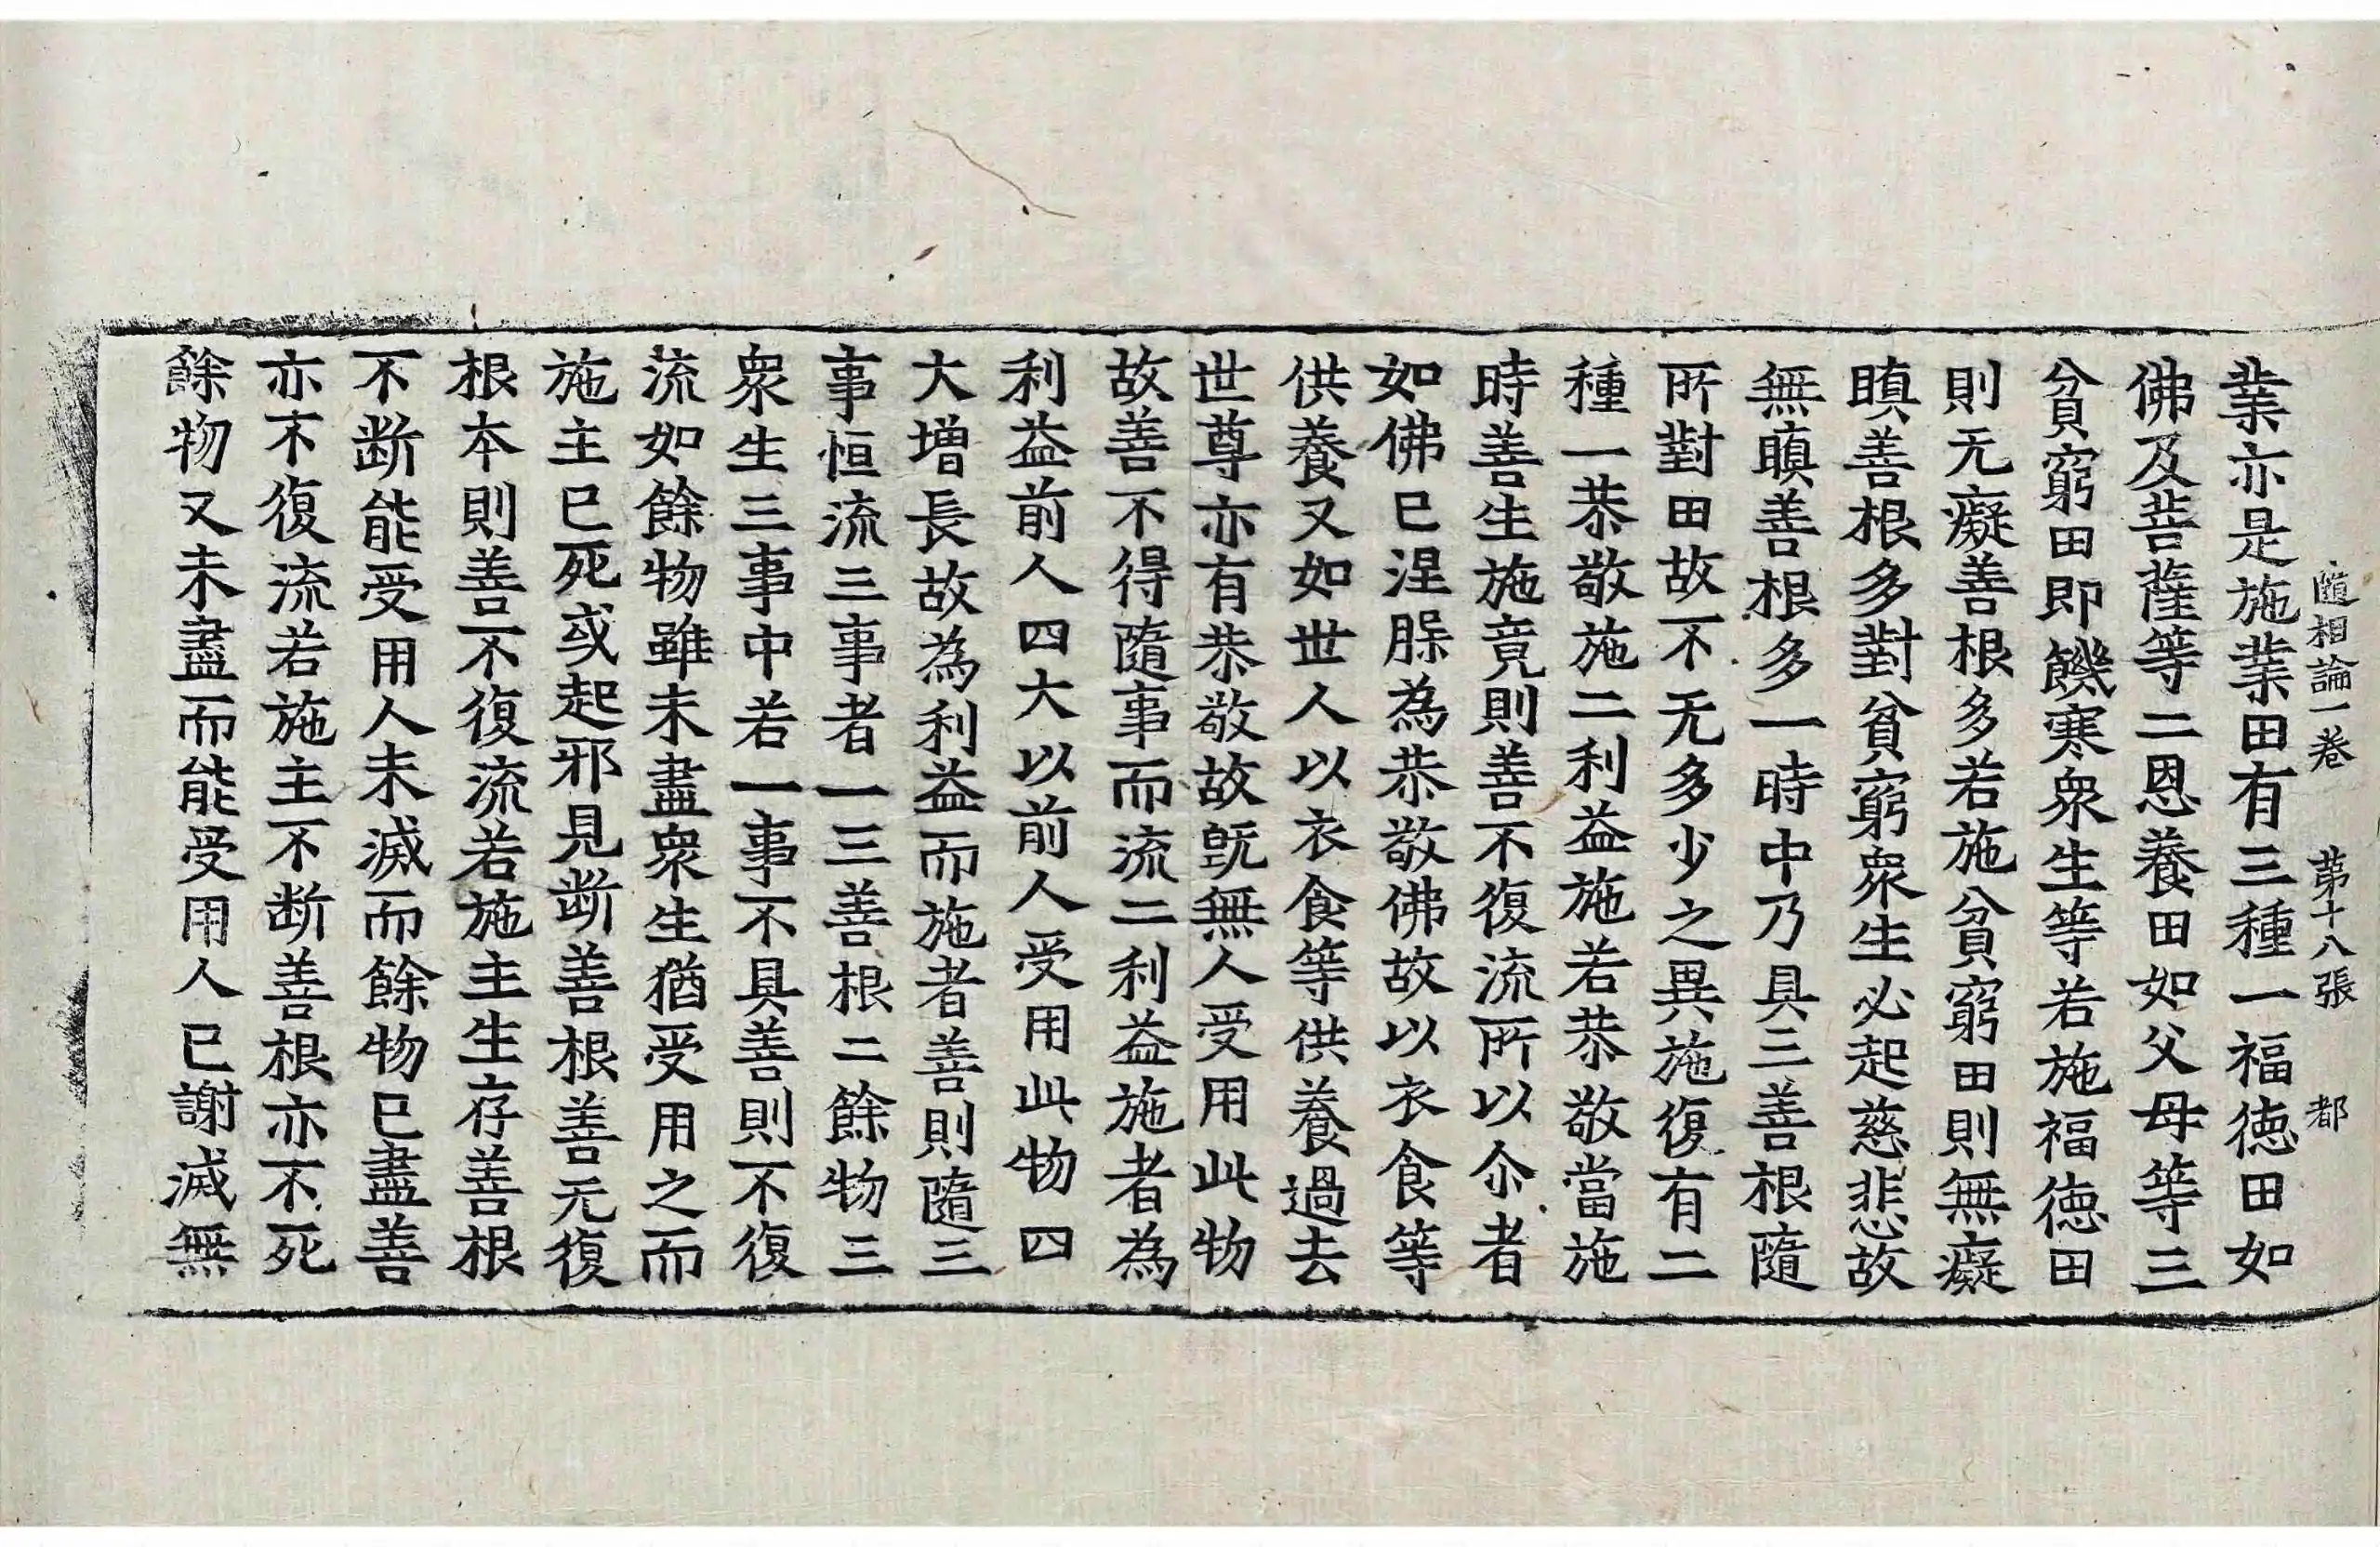 隨相論一卷　第十八張　都
業亦是施業田有三種一福徳田如
佛及菩薩等二恩養田如父母等三
貧窮田即饑寒衆生等若施福徳田
則无癡善根多若施貧窮田則無癡
瞋善根多對貧窮衆生必起慈悲故
無瞋善根多一時中乃具三善根隨
所對田故不无多少之異施復有二
種一恭敬施二利益施若恭敬當施
時善生施竟則善不復流所以尒者
如佛已涅槃為恭敬佛故以衣食等
供養又如世人以衣食等供養過去
世尊亦有恭敬故旣無人受用此物
故善不得隨事而流二利益施者為
利益前人四大以前人受用此物四
大增長故為利益而施者善則隨三
事恒流三事者一三善根二餘物三
衆生三事中若一事不具善則不復
流如餘物雖未盡衆生猶受用之而
施主已死或起邪見断善根善无復
根本則善不復流若施主生存善根
不断能受用人未滅而餘物已盡善
亦不復流若施主不断善根亦不死
餘物又未盡而能受用人已謝滅無